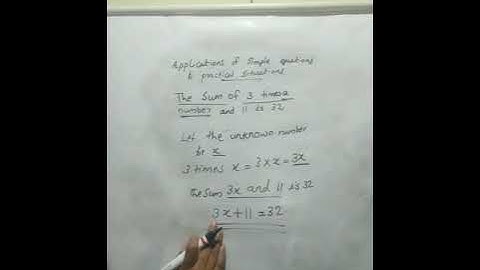 Applications of Simple equations
to practical situations
The Sum of 3 times a
number and 11 is 32
Let the unknown number
be x
3 times x = 3 × x = 3x
The Sum 3x and 11 is 32
3x + 11 = 32